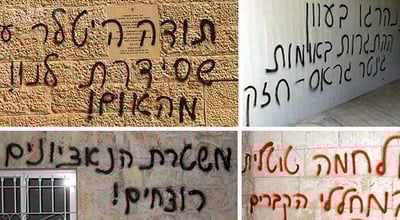 תודה היטלר
שסידרת לנו
מהאום!
נהרגו בעוון
ההתגרות באומות
גינטר גראס - חזק
משטרת הנאציונים
רוצחים!
לחמה טוטלית
במחללי הקברים